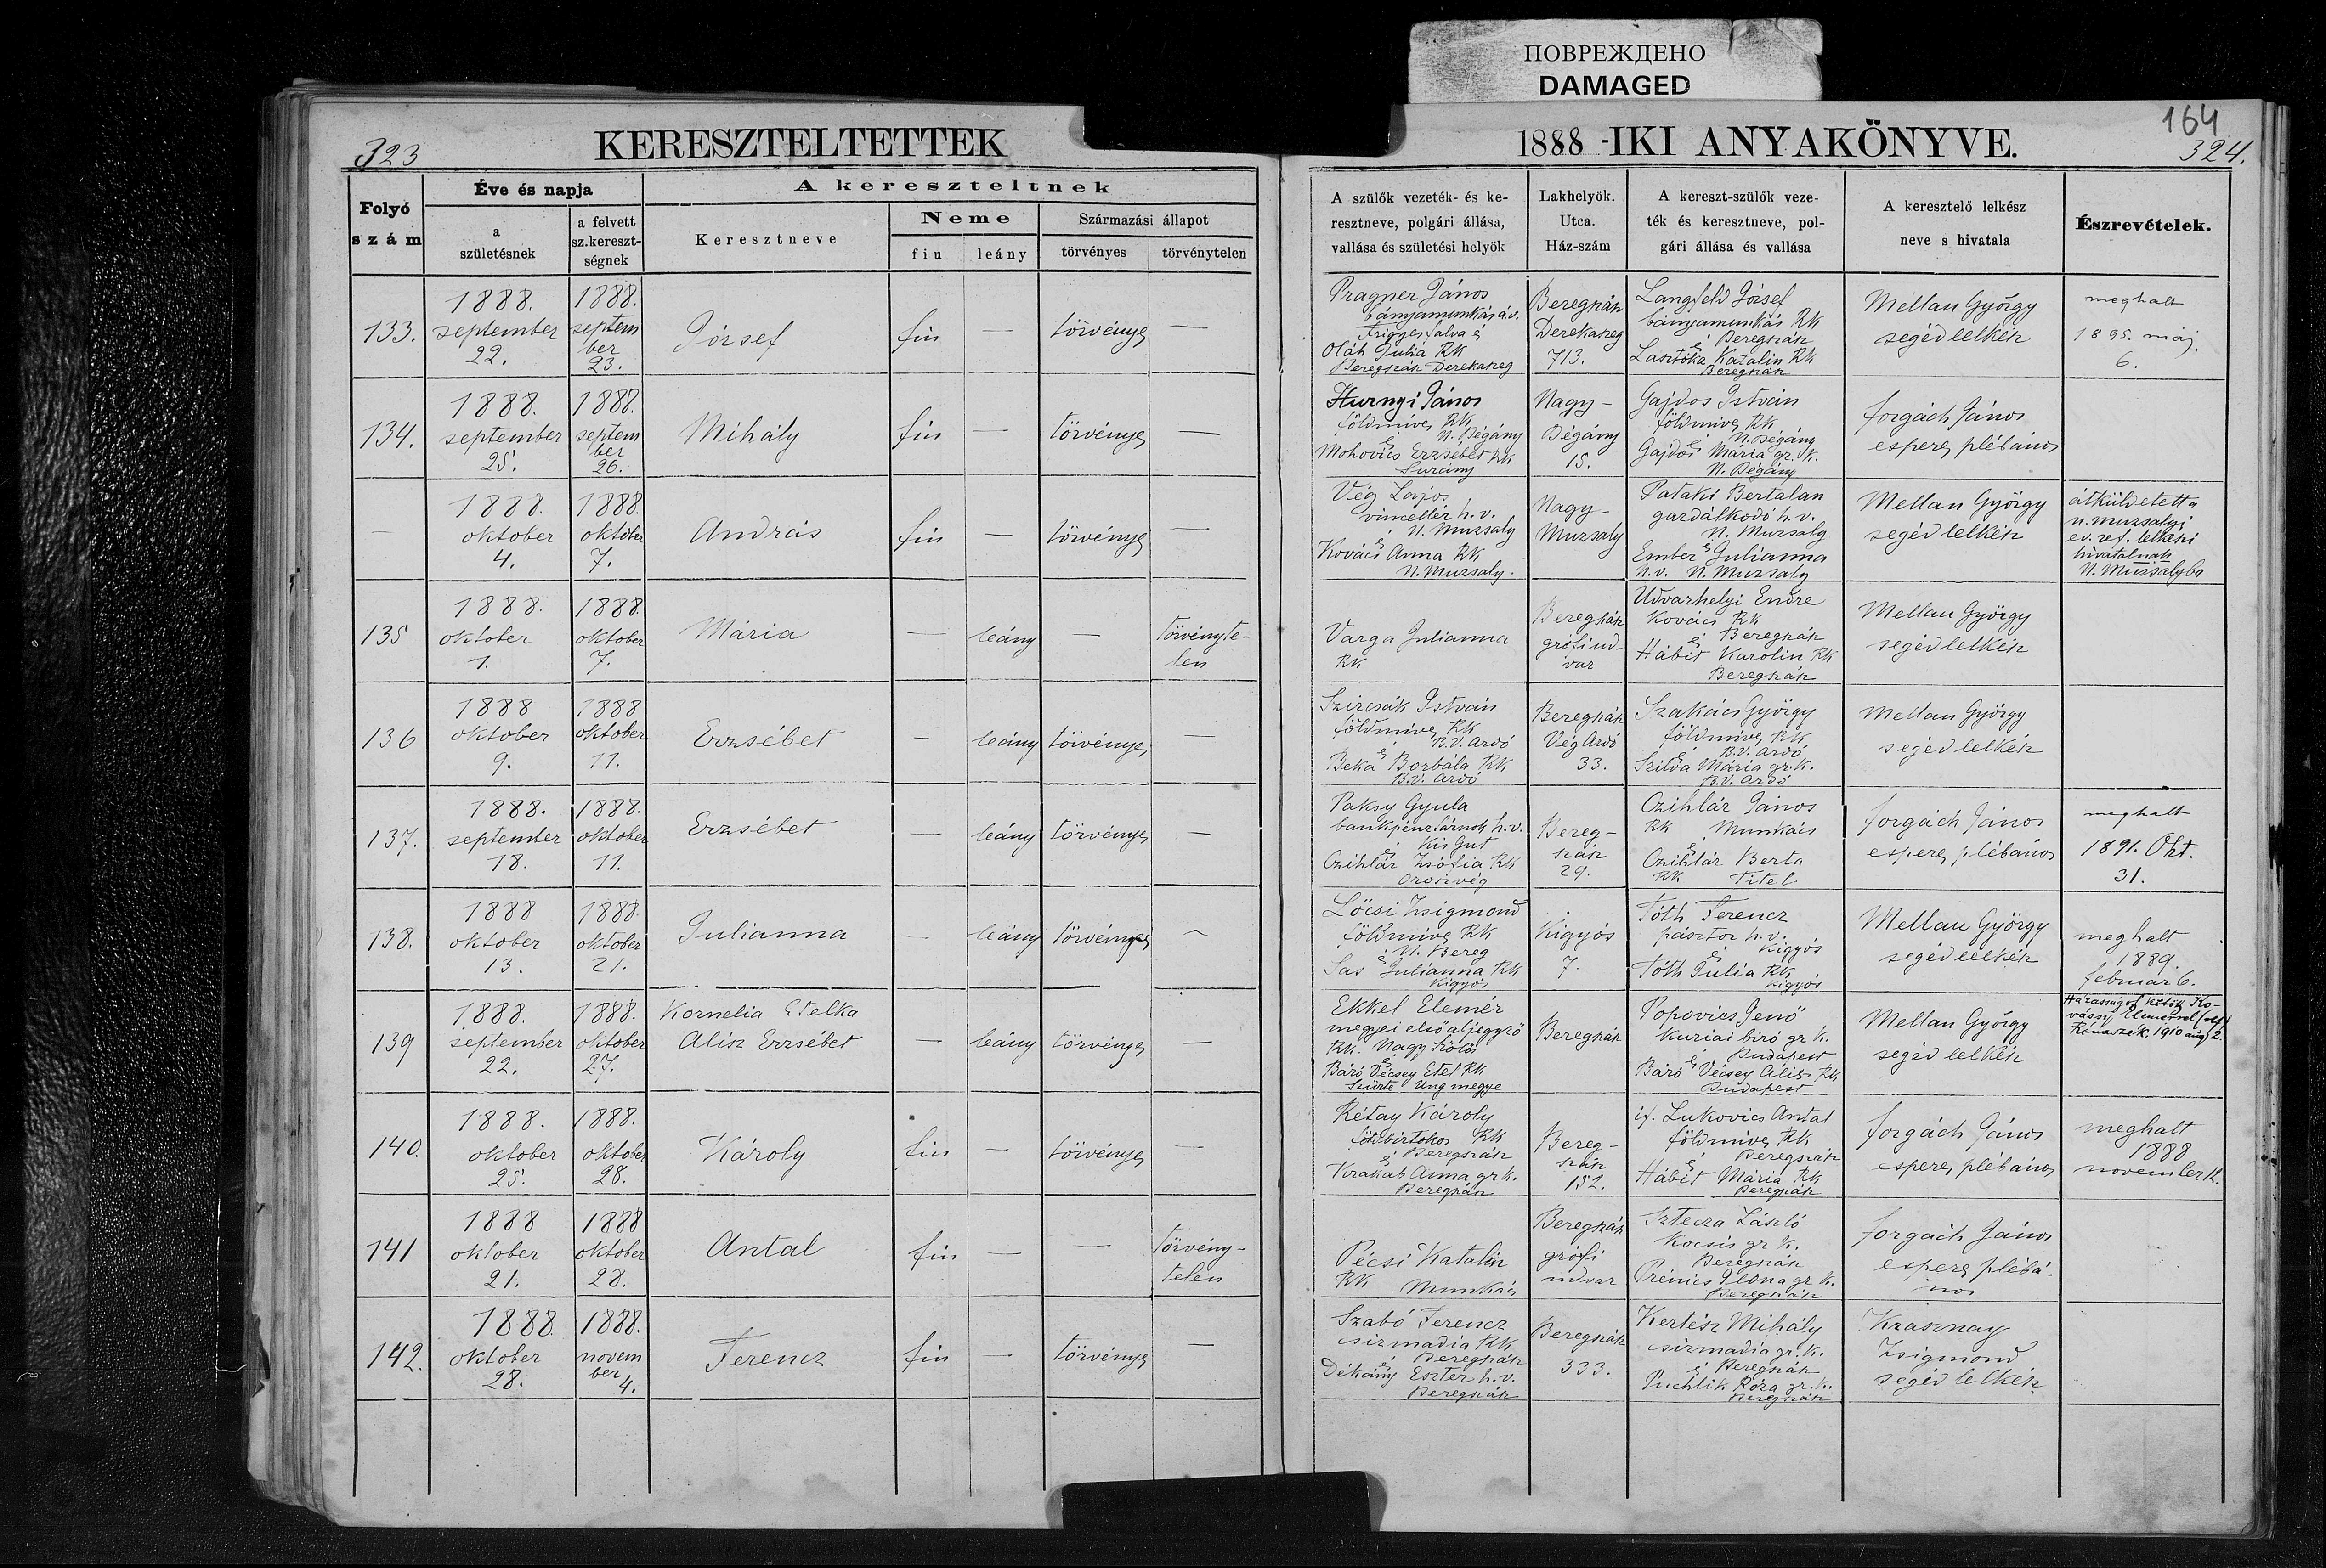 ПОВРЕЖДЕНО
DAMAGED
164
323
KERESZTELTETTEK
1888 -IKI ANYAKÖNYVE.
324.
Folyó szám
Éve és napja
a születésnek
a felvett sz.kereszt-ségnek
A kereszteltnek
Keresztneve
Neme
fiu
leány
Származási állapot
törvényes
törvénytelen
A szülők vezeték- és ke-
resztneve, polgári állása,
vallása és születési helyök
Lakhelyök.
Utca.
Ház-szám
A kereszt-szülők veze-
ték és keresztneve, pol-
gári állása és vallása
A keresztelő lelkész
neve s hivatala
Észrevételek.
133.
1888.
september
22.
1888.
septem
ber
23.
József
fiu
—
törvényes
—
Pragner János
bányamunkás á.v.
Frigyesfalva és
Oláh Julia RK
Beregszász Derekaszeg
Beregszász
Derekaszeg
713.
Langfeld József
bányamunkás RK
és Beregszász
Lasztóka Katalin RK
Beregszász
Mellau György
segédlelkész
meghalt
1895. máj.
6.
134.
1888.
september
25.
1888.
septem
ber
26.
Mihály
fiu
—
törvényes
—
Hurnyi János
földmives RK
és N. Bégány
Mohovics Erzsébet RK
Surány
Nagy-
Bégány
15.
Gajdos István
földmives RK
és N. Bégány
Gajdos Mária gr. K.
N. Bégány
Forgách János
esperes plébános
—
1888.
oktober
4.
1888.
oktober
7.
András
fiu
—
törvényes
—
Vég Lajos
vincellér h.v.
N. Muzsaly
és
Kovács Anna RK
N. Muzsaly.
Nagy-
Muzsaly
Pataki Bertalan
gazdálkodó h.v.
N. Muzsaly
és
Ember Julianna
h.v. N. Muzsaly
Mellau György
segédlelkész
átküldetett a
n. muzsalyi
ev. ref. lelkészi
hivatalnak
N. Muzsalyba
135
1888.
oktober
1.
1888.
oktober
7.
Mária
—
leány
—
törvényte-
len
Varga Julianna
RK
Beregszász
grófi ud-
var
Udvarhelyi Endre
Kovács RK
és Beregszász
Hábit Karolin RK
Beregszász
Mellau György
segédlelkész
136
1888
oktober
9.
1888
oktober
11.
Erzsébet
—
leány
törvényes
—
Szircsák István
földmives RK
B.V. Ardó
és
Beka Borbála RK
B.V. Ardó
Beregszász
Vég Ardó
33.
Szakács György
földmives RK
és B.V. Ardó
Szilva Mária gr. K.
B.V. Ardó
Mellau György
segédlelkész
137.
1888.
september
18.
1888.
oktober
11.
Erzsébet
—
leány
törvényes
—
Paksy Gyula
bankpénztárnok h.v.
és Kis Gut
Czihlár Zsófia RK
Oroszvég
Bereg-
szász
29.
Czihlár János
RK Munkács
és
Czihlár Berta
RK Titel
Forgách János
esperes plébános
meghalt
1891. Okt.
31.
138.
1888
oktober
13.
1888.
oktober
21.
Julianna
—
leány
törvényes
—
Lőcsi Zsigmond
földmives RK
N. Bereg
és
Sas Julianna RK
Kigyós
Kigyós
7.
Tóth Ferencz
pásztor h.v.
és Kigyós
Tóth Julia RK
Kigyós
Mellau György
segédlelkész
meghalt
1889.
február 6.
139
1888.
september
22.
1888.
oktober
27.
Kornelia Etelka
Alisz Erzsébet
—
leány
törvényes
—
Ekkel Elemér
megyei első aljegyző
RK. Nagy Szőlős
és
Báró Vécsey Etel RK
Szürte Ung megye
Beregszász
Popovics Jenő
kuriai biró gr K.
és Budapest
Báró Vécsey Alisz RK
Budapest
Mellau György
segédlelkész
Házasságot kötött Ko-
vássy Elemérrel
1910 aug 2.
140.
1888.
oktober
25.
1888.
oktober
28.
Károly
fiu
—
törvényes
—
Rétay Károly
földbirtokos RK
és Beregszász
Krakab Anna gr K.
Beregszász
Bereg-
szász
152.
if. Lukovics Antal
földmives RK
és Beregszász
Hábit Mária RK
Beregszász
Forgách János
esperes plébános
meghalt
1888
november 12.
141
1888
oktober
21.
1888
oktober
28.
Antal
fiu
—
—
törvény-
telen
Pécsi Katalin
RK Munkács
Beregszász
grófi
udvar
Sztecza László
kocsis gr K.
Beregszász
Prénics Ilona gr K.
Beregszász
Forgách János
esperes plébá-
nos
142.
1888
oktober
28.
1888.
novem
ber
4.
Ferencz
fiu
—
törvényes
—
Szabó Ferencz
csizmadia RK
és Beregszász
Dékány Eszter h.v.
Beregszász
Beregszász
333.
Kertész Mihály
csizmadia gr. K.
és Beregszász
Puchlik Róza gr. K.
Beregszász
Krasznay
Zsigmond
segédlelkész